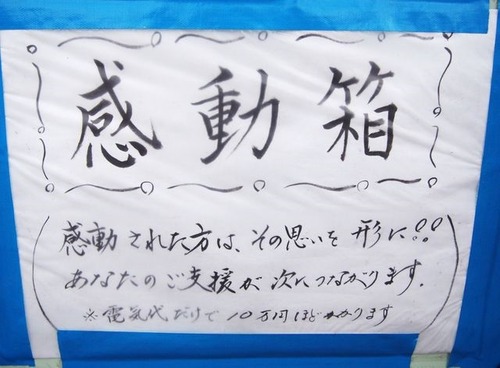 感動箱
(感動された方は、その思いを形に!!
あなたのご支援が次につながります.
※電気代だけで10万円ほどかかります)